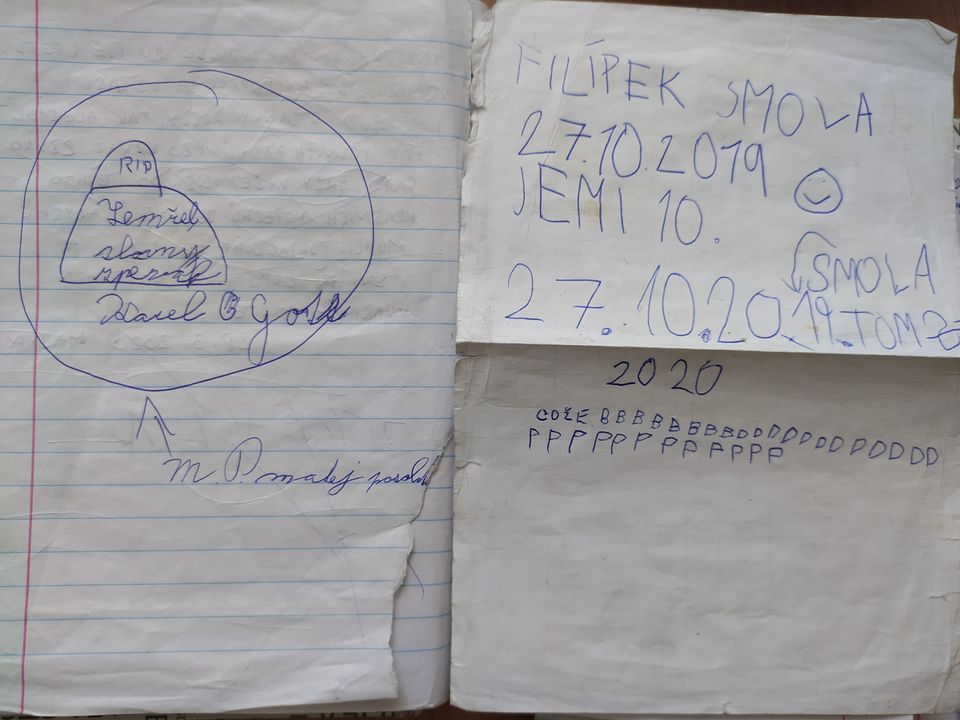 RIP
Zemřel
slavný
zpěvák
Karel G Gott
M. P. matej
FILÍPEK SMOLA
27.10.2019
JEMI 10.
SMOLA
27.10.2019. TOM
2020
COŽE BBBBBBBBBDDDDDDDDDDDDDD
PPPPPPPPPPPPPP